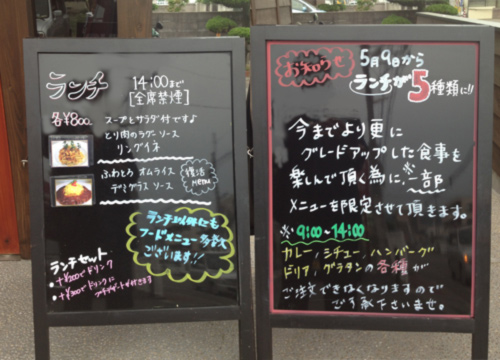 ランチ 14:00まで
[全席禁煙]
各¥800. スープとサラダ付ですよ
とり肉のラグーソース
リングイネ
ふわとろ オムライス
デミグラスソース
復活
menu
ランチ以外にも
フードメニュー多数
ございます!!
ランチセット
・+¥200でドリンク
・+¥300でドリンクに
プチデザートが付きます
お知らせ
5月9日から
ランチが5種類に!!
今までより更に
グレードアップした食事を
楽しんで頂く為に、※一部
メニューを限定させて頂きます。
※9:00~14:00
カレー、シチュー、ハンバーグ
ドリア、グラタンの各種が
ご注文できなくなりますので
ご了承下さいませ。